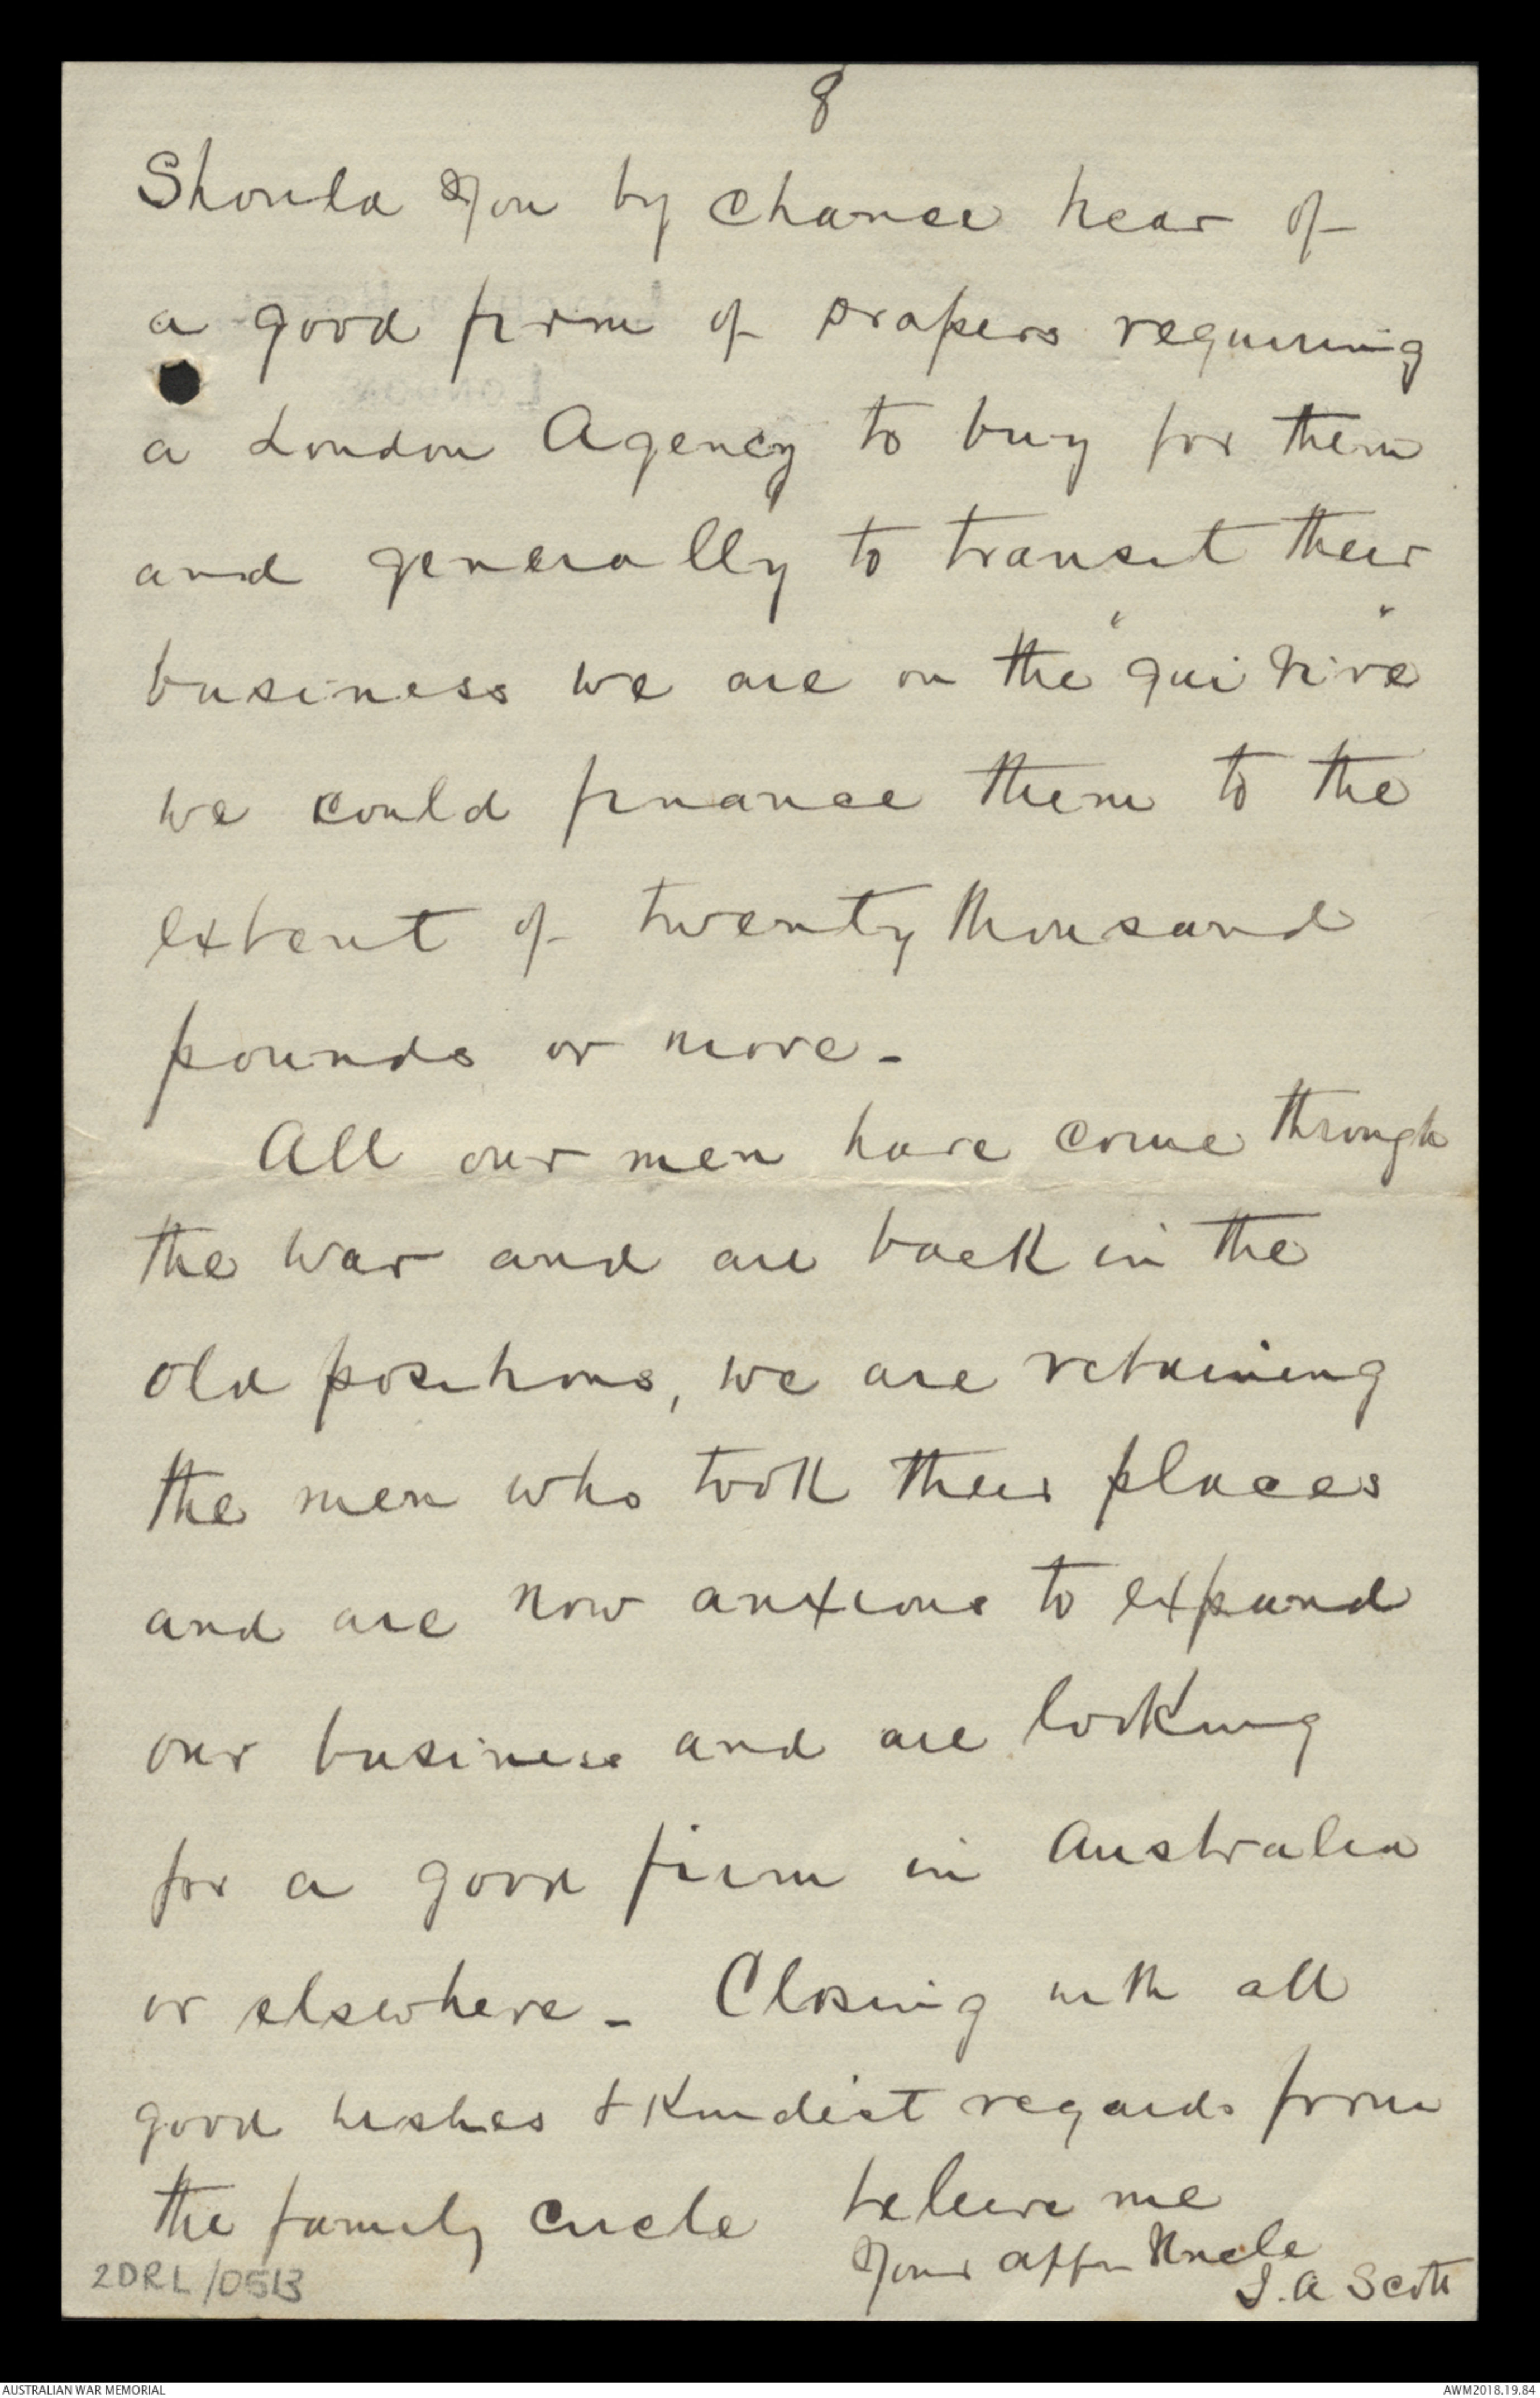 8
Should you by chance hear of
a good firm of drapers requiring
a London Agency to buy for them
and generally to transit their
business we are on the "qui vive"
we could finance them to the
extent of twenty thousand
pounds or more -
All our men have come through
the war and are back in the
old positions, we are retaining
the men who took their places
and are now anxious to expand
our business and are looking
for a good firm in Australia
or elsewhere - Closing with all
good wishes & Kindest regards from
the family circle believe me
Your affn Uncle
J. A Scott
2DRL/0513
LONDON
AUSTRALIAN WAR MEMORIAL
AWM2018.19.84